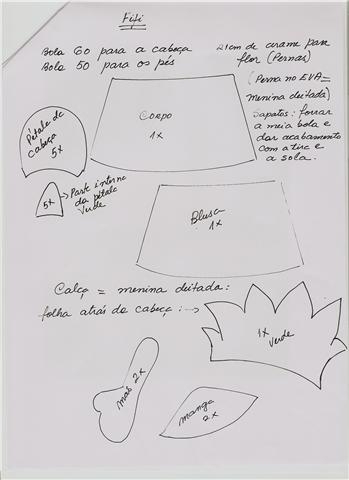 Fifi
Bola 60 para a cabeça
Bola 50 para os pés
21cm de arame para
flor (Pernas)
(Perna no EVA=
menina deitada)
Sapatos: forrar
a meia bola e
dar acabamento
com a tira e
a sola.
Corpo
1x
Pétala de
cabeça
5x
5x
Parte interna
da pétala
verde
Blusa
1x
Calça = menina deitada:
folha atrás da cabeça:
1x
Verde
mão 2x
manga
2x